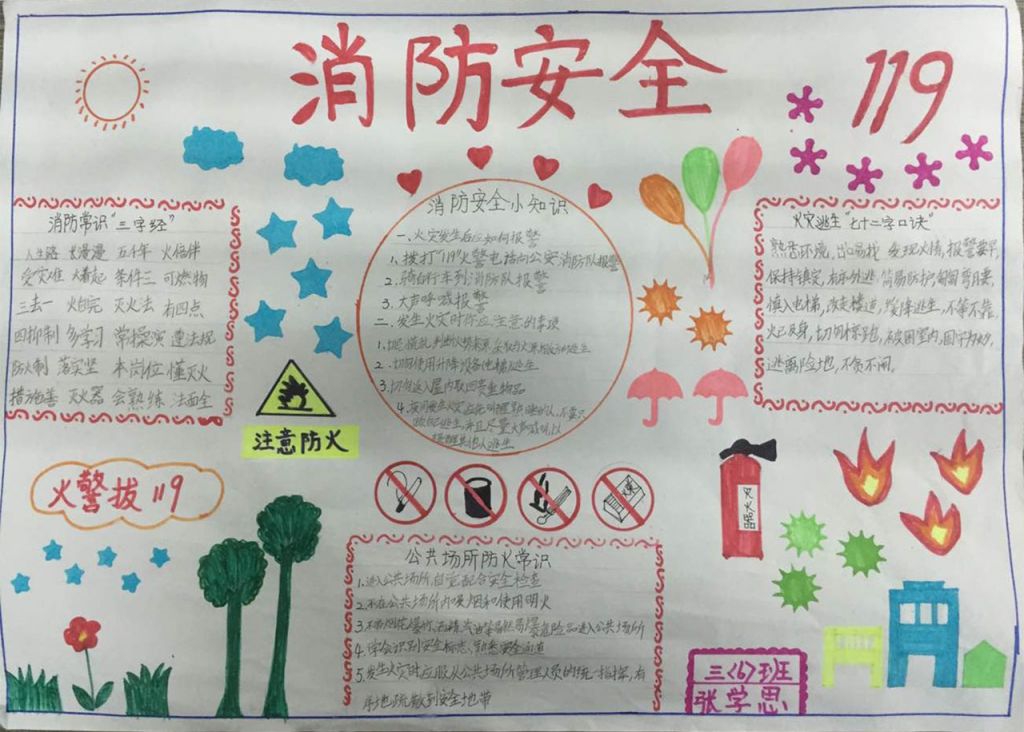 消防安全
119
消防常识“三字经”
人生路 长漫漫 五千年 火相伴
受灾难 火着起 条件三 可燃物
三去一 火自完 灭火法 有四点
四抑制 多学习 常操演 遵法规
防火制 落实坚 本岗位 懂灭火
措施善 灭火器 会熟练 法面全
消防安全小知识
一、火灾发生后应如何报警
1、拨打“119”火警电话向公安消防队报警
2、骑自行车到消防队报警
3、大声呼喊报警
二、发生火灾时你应注意的事项
2、切勿使用升降设备电梯逃生
3、切勿返入屋内取回贵重物品
火灾逃生“七十二字口诀”
熟悉环境,出口易找 发现火情,报警要早,
保持镇定,有序外逃 简易防护,匍匐弯腰,
慎入电梯,改走楼道,缓降逃生,不等不靠
火已及身,切勿惊跑,被困室内,固守为妙,
逃离险地,不贪不闹.
注意防火
火警拔119
灭火器
公共场所防火常识
1、进入公共场所,自觉配合安全检查
2、不在公共场所内吸烟和使用明火
3、不带烟花爆竹、酒精、汽油等易燃易爆危险品进入公共场所
4、学会识别安全标志,熟悉安全通道
5、发生火灾时应服从公共场所管理人员的统一指挥,有
序地疏散到安全地带
三(6)班
张学思